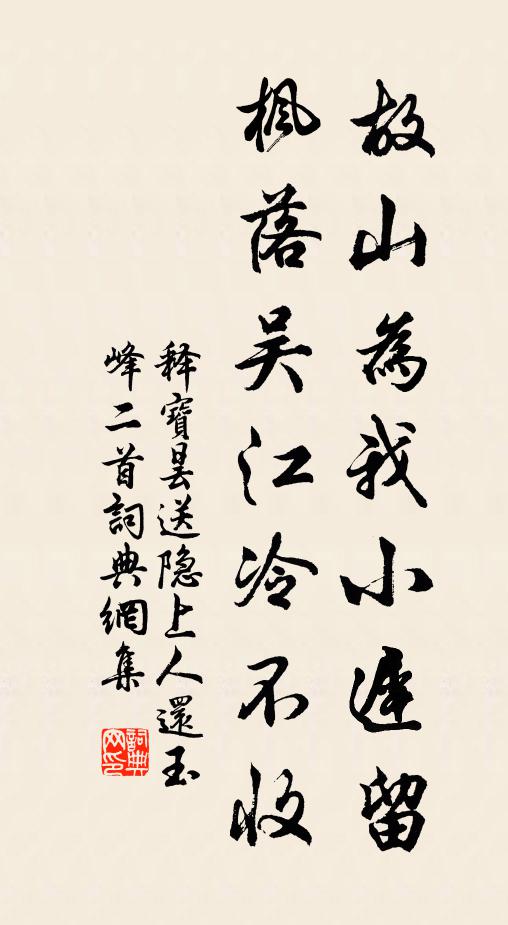 故山為我小遲留
楓落吴江冷不收
释寶曇送隐上人還玉
峰二首詞典網集
詞典网印